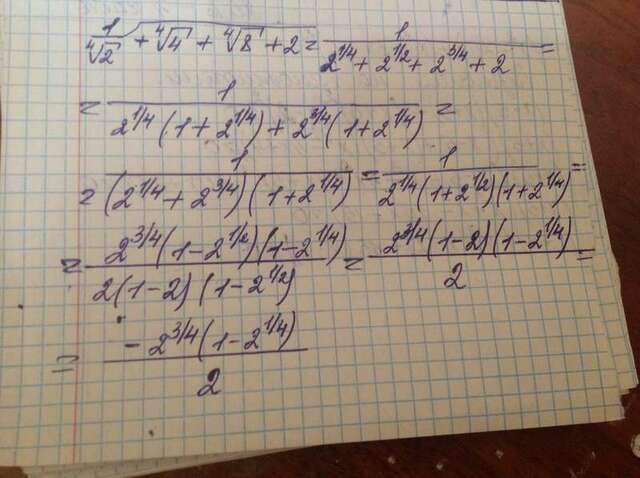 1/(∜2 + ∜4 + ∜8 + 2) = 1/(2^{1/4} + 2^{1/2} + 2^{3/4} + 2) =
= 1/(2^{1/4}(1 + 2^{1/4}) + 2^{3/4}(1 + 2^{1/4})) =
= 1/((2^{1/4} + 2^{3/4})(1 + 2^{1/4})) = 1/(2^{1/4}(1 + 2^{1/2})(1 + 2^{1/4})) =
= 2^{3/4}(1 - 2^{1/2})(1 - 2^{1/4})/(2(1 - 2)(1 - 2^{1/2})) = 2^{3/4}(1 - 2)(1 - 2^{1/4})/2 =
= -2^{3/4}(1 - 2^{1/4})/2